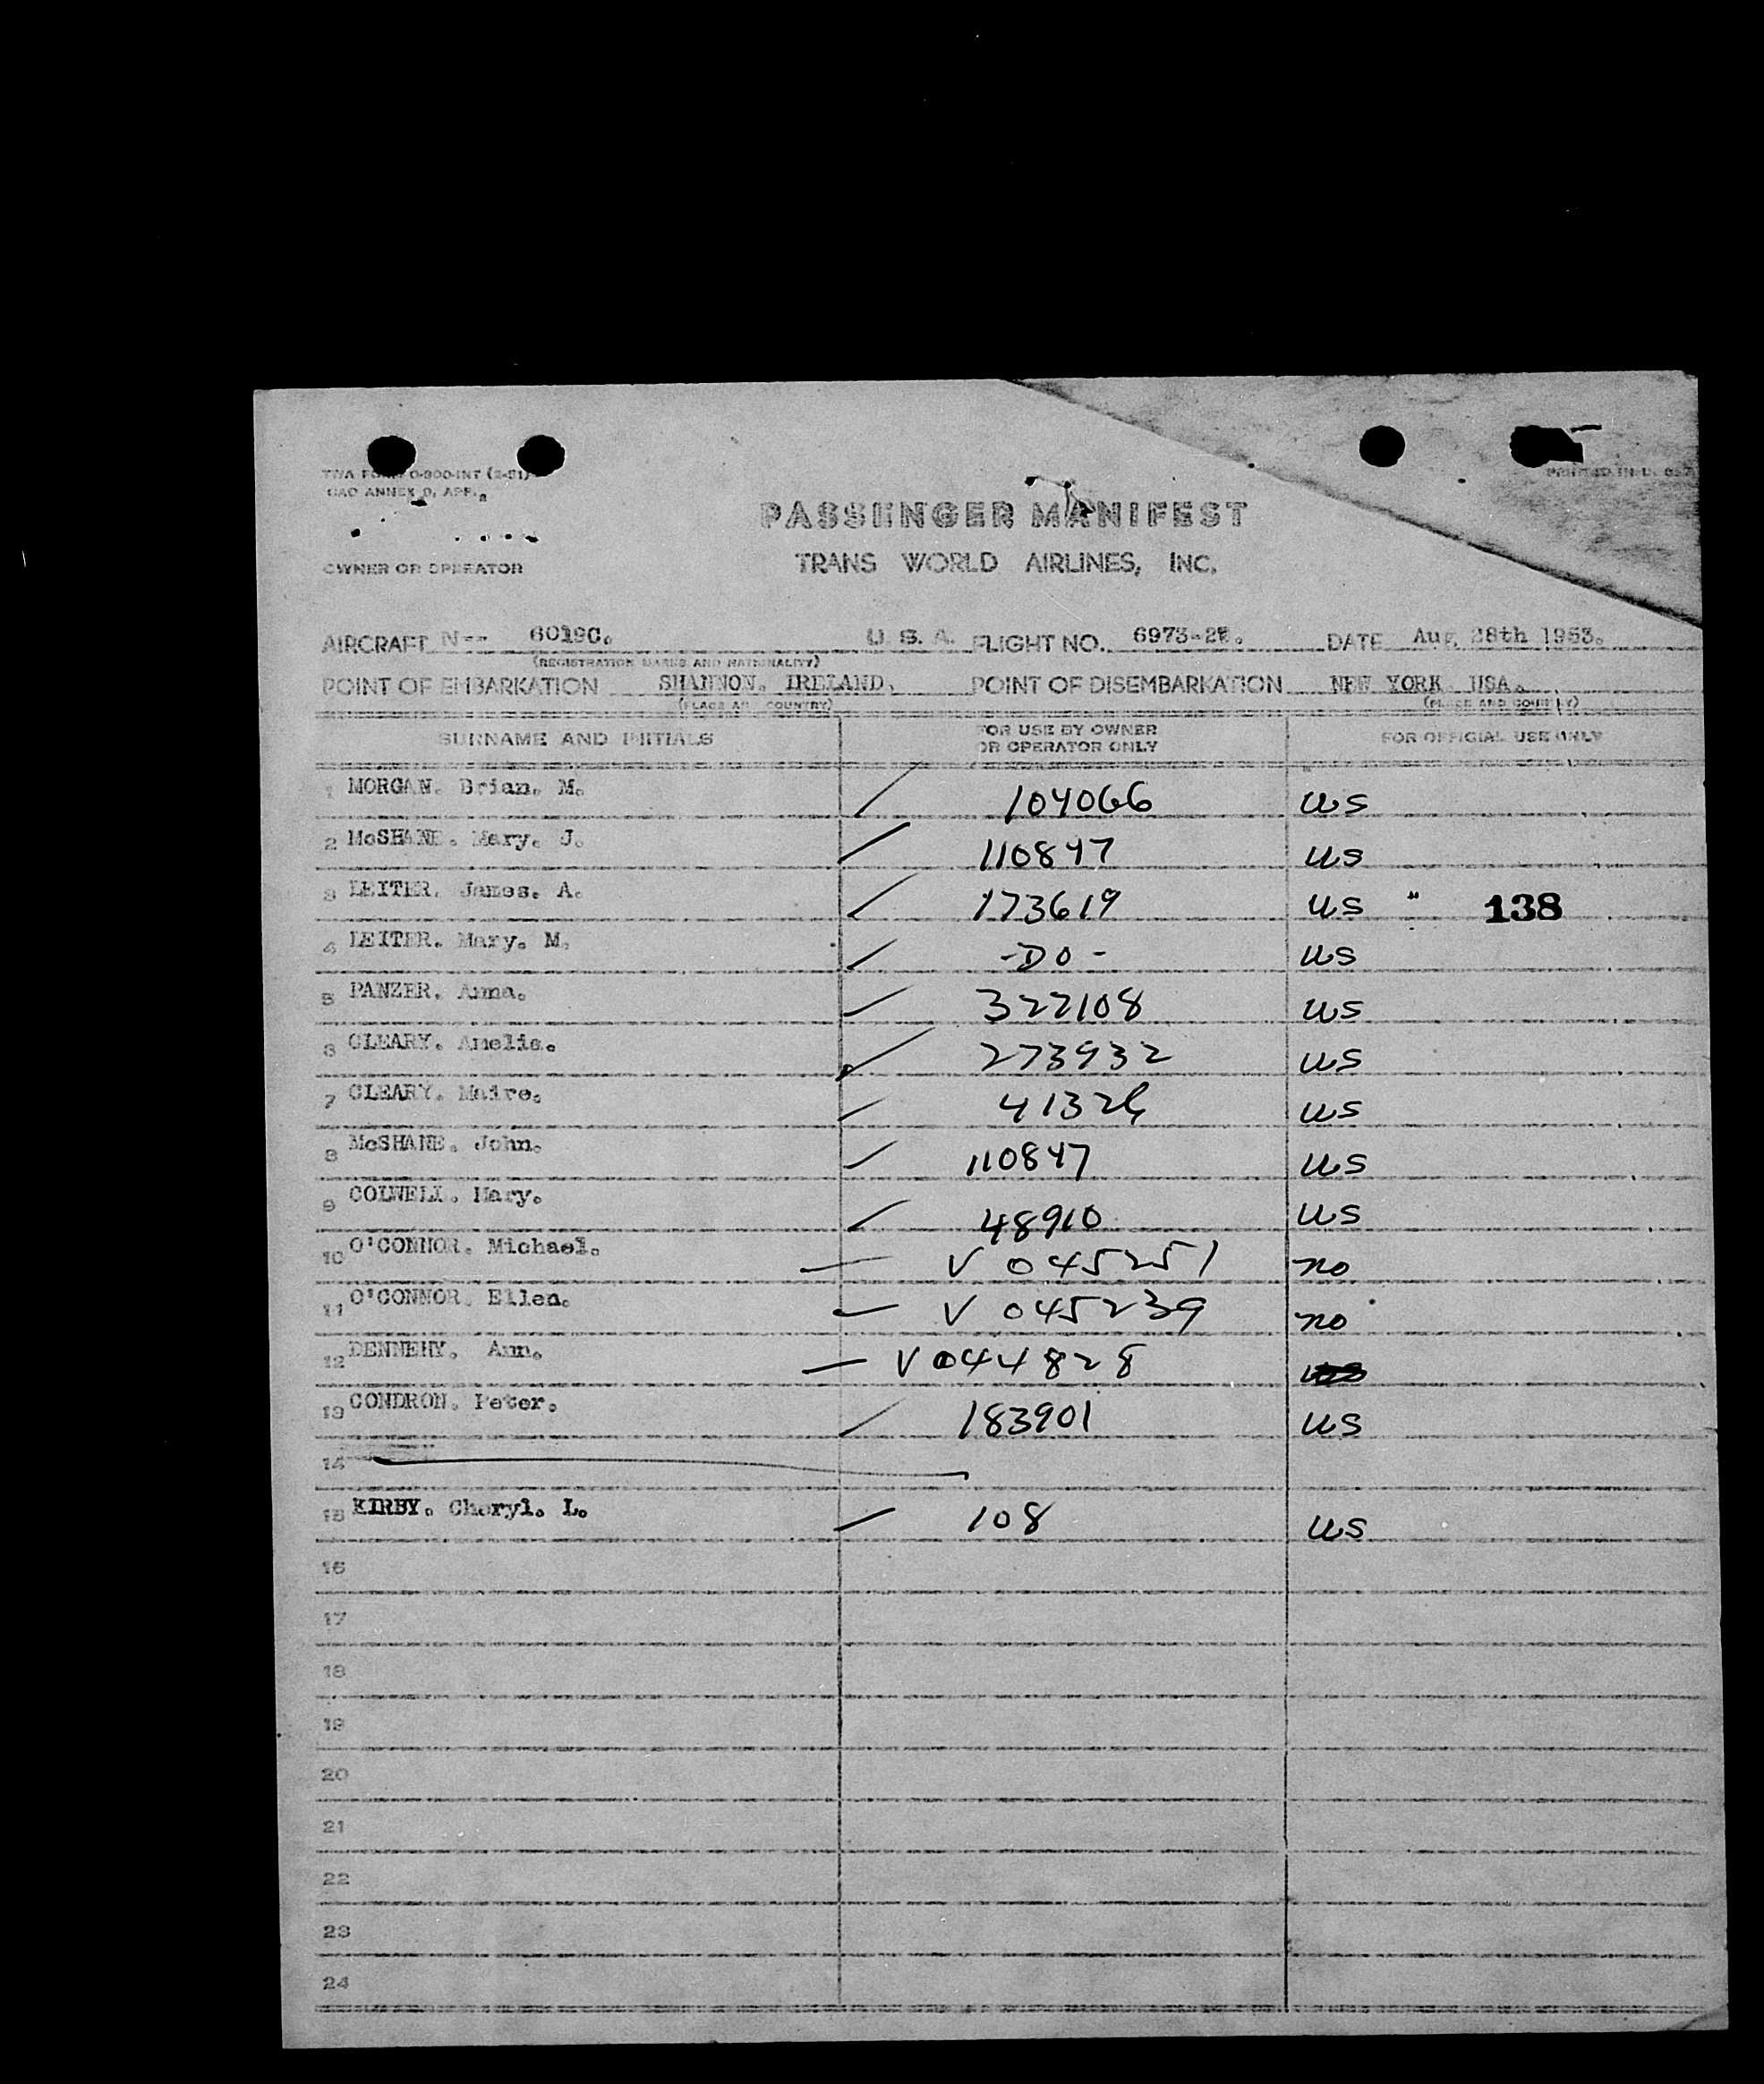 TWA FORM O-800-INT (2-51)
ICAO ANNEX 9, APP.
PRINTED IN U. S.
PASSENGER MANIFEST
OWNER OR OPERATOR TRANS WORLD AIRLINES, INC.
AIRCRAFT N-- 6019C. U. S. A. FLIGHT NO. DATE Aug. 28th 1953.
(REGISTRATION MARKS AND NATIONALITY)
POINT OF EMBARKATION SHANNON. IRELAND. POINT OF DISEMBARKATION NEW YORK USA.
(PLACE AND COUNTRY) (PLACE AND COUNTRY)
SURNAME AND INITIALS FOR USE BY OWNER OR OPERATOR ONLY FOR OFFICIAL USE ONLY
1 MORGAN. Brian. M. 104066 US
2 McSHANE. Mary. J. 110847 US
3 LEITER. James. A. 173619 US " 138
4 LEITER. Mary. M. -DO- US
5 PANZER. Anna. 322108 US
6 CLEARY. Amelia. 273932 US
7 CLEARY. Maire. US
8 McSHANE. John. 110847 US
9 COLWELL. Mary. 48910 US
10 O'CONNOR. Michael. V 045251 no
11 O'CONNOR. Ellen. V 045239 no
12 DENNEHY. Ann. V 044828
13 CONDRON. Peter. 183901 US
14
15 KIRBY. Cheryl. L. 108 US
16
17
18
19
20
21
22
23
24